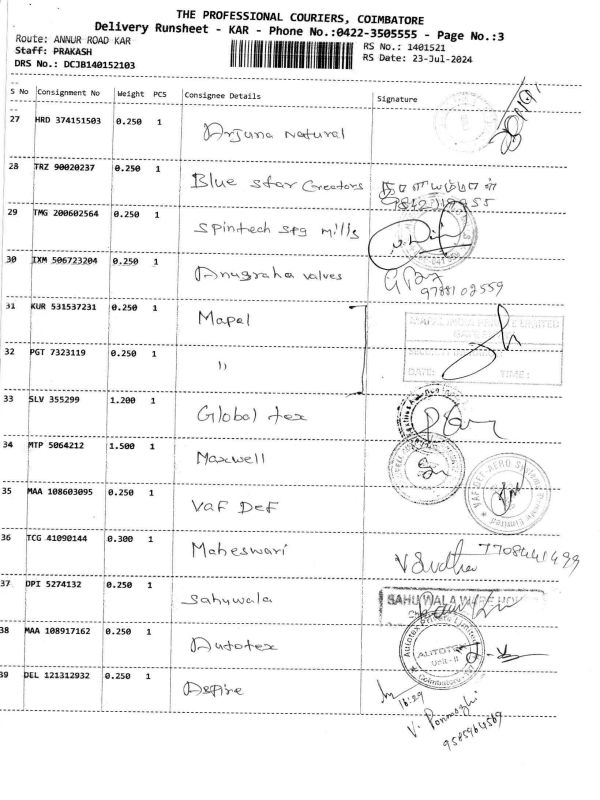 THE PROFESSIONAL COURIERS, COIMBATORE
Delivery Runsheet - KAR - Phone No.:0422-3505555 - Page No.:3
Route: ANNUR ROAD KAR
Staff: PRAKASH
DRS No.: DCJB140152103
RS No.: 1401521
RS Date: 23-Jul-2024
S No Consignment No Weight PCS Consignee Details Signature
27 HRD 374151503 0.250 1 Arjuna Natural
28 TRZ 90020237 0.250 1 Blue Star Creators
29 TMG 200602564 0.250 1 Spintech Spg Mills
30 IXM 506723204 0.250 1 Anugraha valves
9788102559
31 KUR 531537231 0.250 1 Mapal
32 PGT 7323119 0.250 1 "
DATE: TIME:
33 SLV 355299 1.200 1 Global tex
34 MTP 5064212 1.500 1 Maxwell
35 MAA 108603095 0.250 1 VAF DEF
36 TCG 41090144 0.300 1 Maheswari
V Sudha 7708441499
37 DPI 5274132 0.250 1 Sahuwala
SAHUWALA
38 MAA 108917162 0.250 1 Autotex
Autotex Limited
AUTOTEX
UNIT - II
Coimbatore
39 DEL 121312932 0.250 1 Aspire
16:29
V. Ponmozhi
9585964569